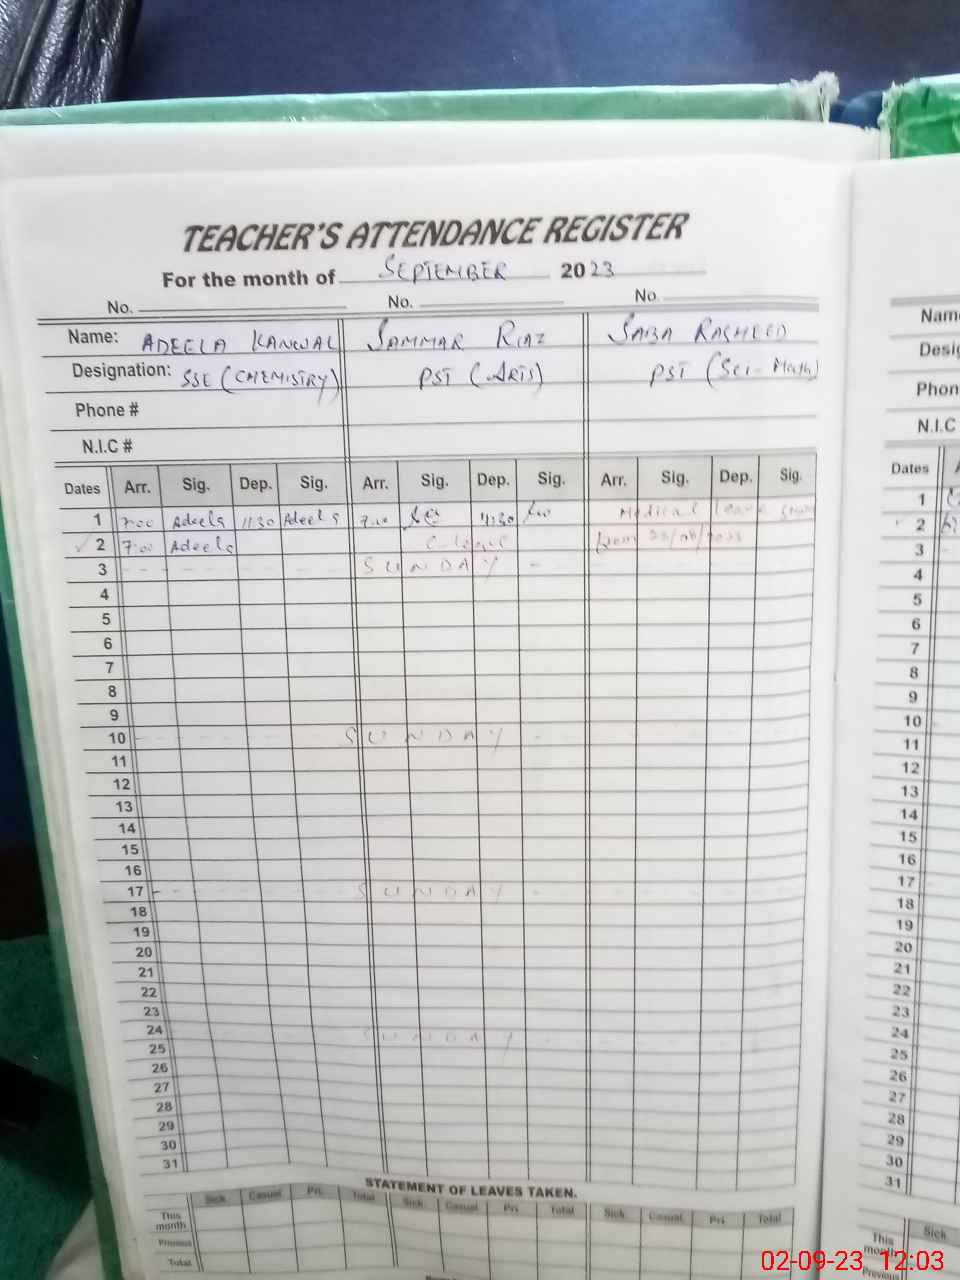 TEACHER'S ATTENDANCE REGISTER
For the month of SEPTEMBER 2023
No. No. No.
Name: ADEELA KANWAL SAMMAR RIAZ SABA RASHEED
Designation: SSE (CHEMISTRY) PST (ARTS) PST (Sci-Math)
Phone #
N.I.C #
Dates Arr. Sig. Dep. Sig. Arr. Sig. Dep. Sig. Arr. Sig. Dep. Sig.
1 7:00 Adeela 11:30 Adeela 7:00 11:30 Medical leave
2 7:00 Adeela C. leave from
3 SUNDAY
4
5
6
7
8
9
10 SUNDAY
11
12
13
14
15
16
17 SUNDAY
18
19
20
21
22
23
24 SUNDAY
25
26
27
28
29
30
31
STATEMENT OF LEAVES TAKEN.
Sick Casual Pri. Total Sick Casual Pri. Total Sick Casual Pri. Total
This month
Previous
Total
Name
Desig
Phon
N.I.C
Dates
1
2
3
4
5
6
7
8
9
10
11
12
13
14
15
16
17
18
19
20
21
22
23
24
25
26
27
28
29
30
31
Sick
This month
Previous
02-09-23 12:03